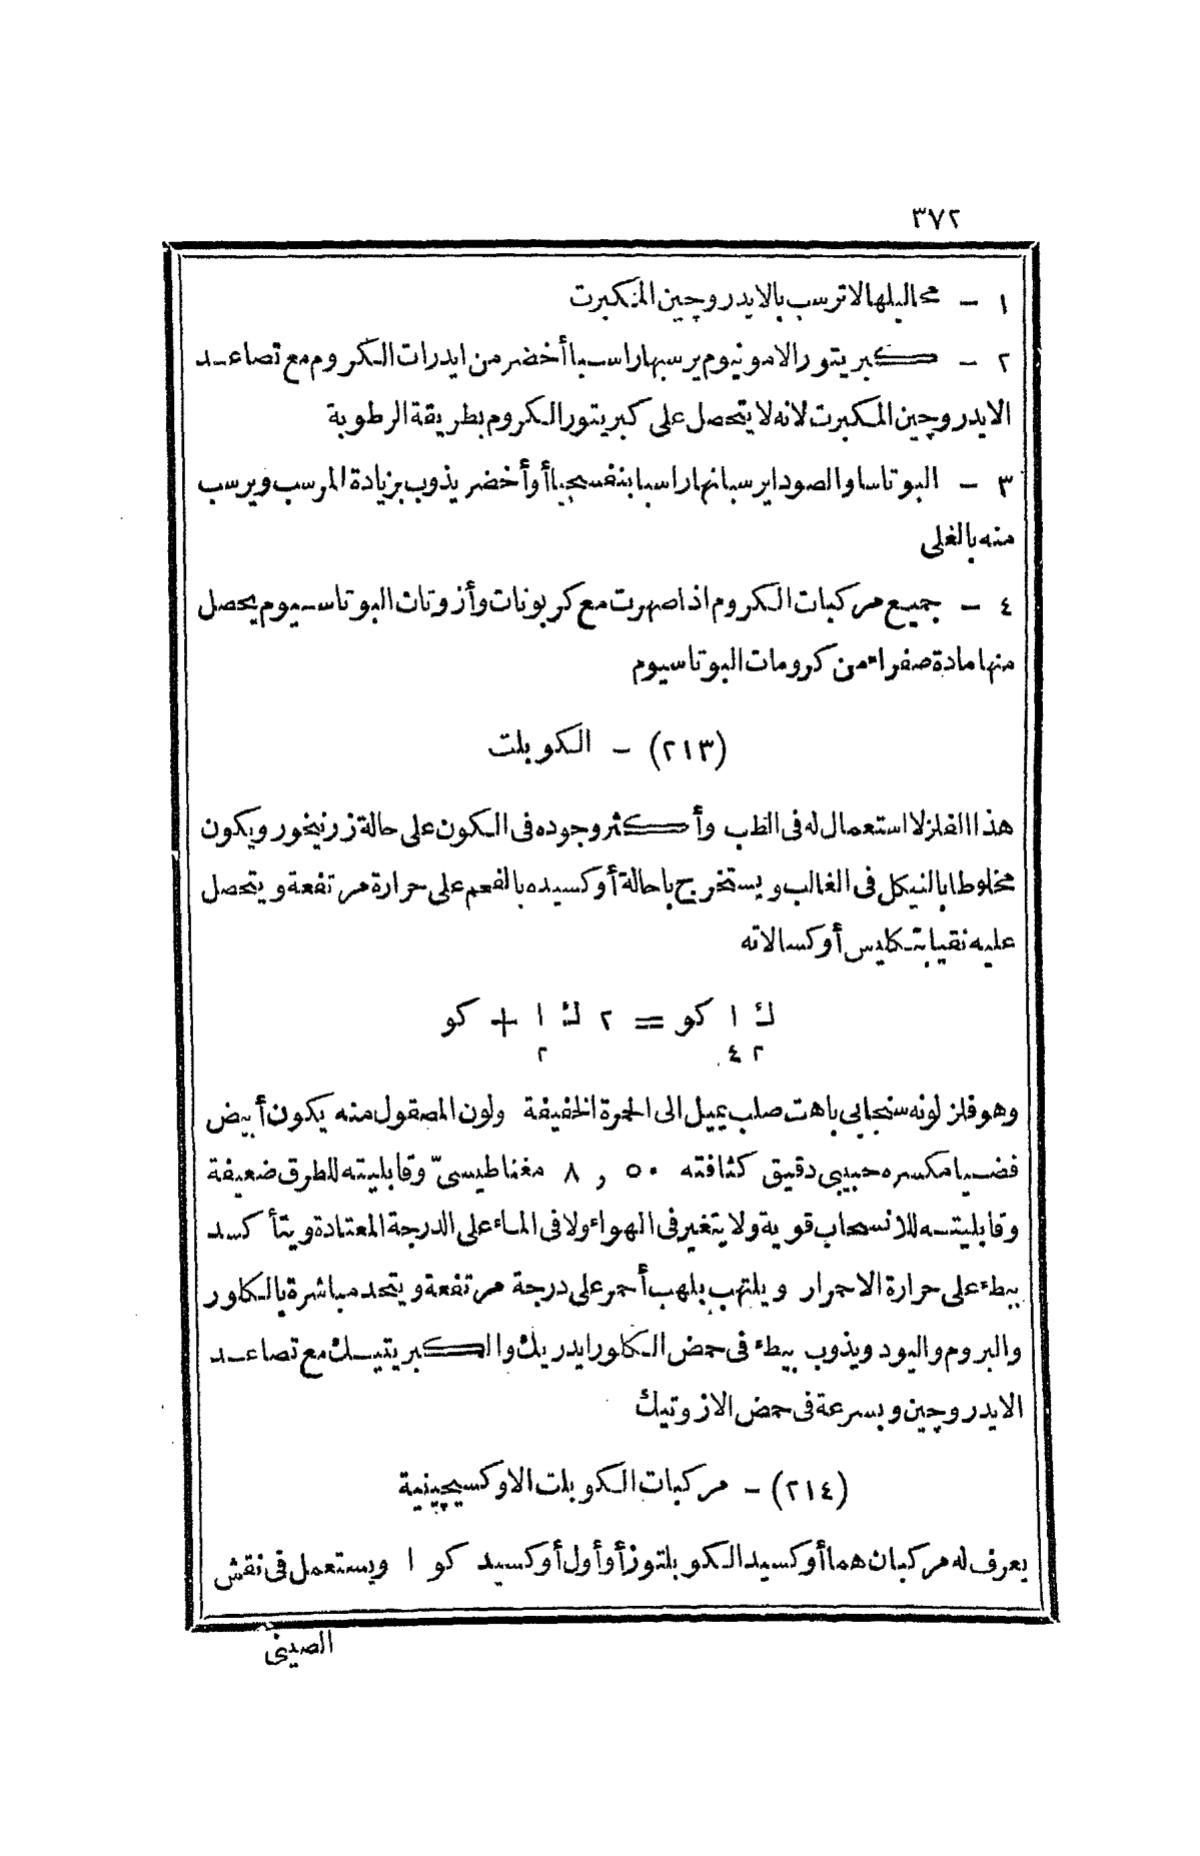 ٣٧٢
١ – محاليلها لا ترسب بالايدروچين المكبرت
٢ – كبريتور الامونيوم يرسبها راسبا أخضر من ايدرات الكروم مع تصاعد
الايدروچين المكبرت لانه لا يتحصل على كبريتور الكروم بطريقة الرطوبة
٣ – البوتاسا والصودا يرسبانها راسبا بنفسجيا أو أخضر يذوب بزيادة المرسب ويرسب
منه بالغلى
٤ – جميع مركبات الكروم اذا صهرت مع كربونات وأزوتات البوتاسيوم يحصل
منها مادة صفراء من كرومات البوتاسيوم
(٢١٣) – الكوبلت
هذا الفلز لا استعمال له فى الطب وأكثر وجوده فى الكون على حالة زرنيخور ويكون
مخلوطا بالنيكل فى الغالب ويستخرج باحالة أوكسيده بالفحم على حرارة مرتفعة ويتحصل
عليه نقيا بتكليس أوكسالاته
ك ا كو = ٢ ك ا + كو
٢ ٤ ٢
وهو فلز لونه سنجابى باهت صلب يميل الى الحمرة الخفيفة ولون المصقول منه يكون أبيض
فضيا مكسره حبيبى دقيق كثافته ٥٠ , ٨ مغناطيسىّ وقابليته للطرق ضعيفة
وقابليته للانسحاب قوية ولا يتغير فى الهواء ولا فى الماء على الدرجة المعتادة ويتأكسد
ببطء على حرارة الاحمرار ويلتهب بلهب أحمر على درجة مرتفعة ويتحد مباشرة بالكلور
والبروم واليود ويذوب ببطء فى حمض الكلورايدريك والكبريتيك مع تصاعد
الايدروچين وبسرعة فى حمض الازوتيك
(٢١٤) – مركبات الكوبلت الاوكسيچينية
يعرف له مركبان هما أوكسيد الكوبلتوز أو أول أوكسيد كو ا ويستعمل فى نقش
الصينى